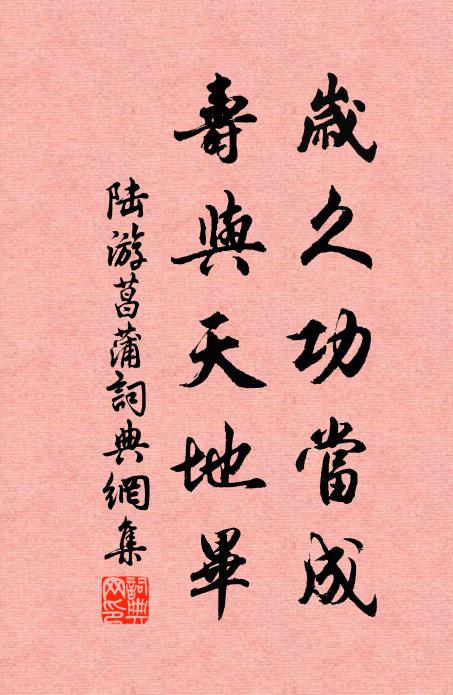 歲久功當成
壽與天地畢
陆游菖蒲詞典網集
詞典网印